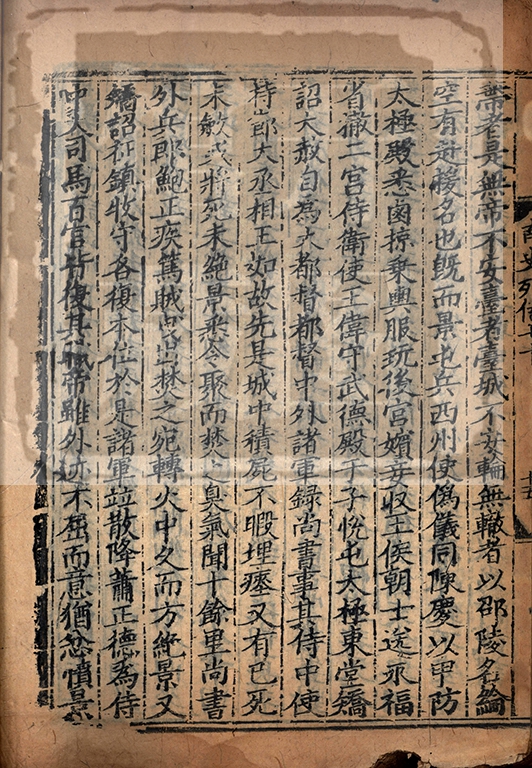 帝者是無帝不安臺者臺城不安輪無轍者以邵陵名綸
空有赴援名也旣而景屯兵西州使僞儀同陳慶以甲防
太極殿悉鹵掠乗輿服玩後宮嬪妾収王侯朝士送永福
省撤二宮侍衛使王偉守武德殿于子悅屯太極東堂矯
詔大赦自為大都督都督中外諸軍録尚書事其侍中使
持節大丞相王如故先是城中積屍不暇埋瘞又有已死
未斂或將死未絕景悉令聚而焚之臭氣聞十餘里尚書
外兵郎鮑正疾篤賊曵出焚之宛轉火中久而方絕景又
矯詔征鎮牧守各復本位於是諸軍竝散降蕭正德為侍
中大司馬百官皆復其職帝雖外迹不屈而意猶忿憤景